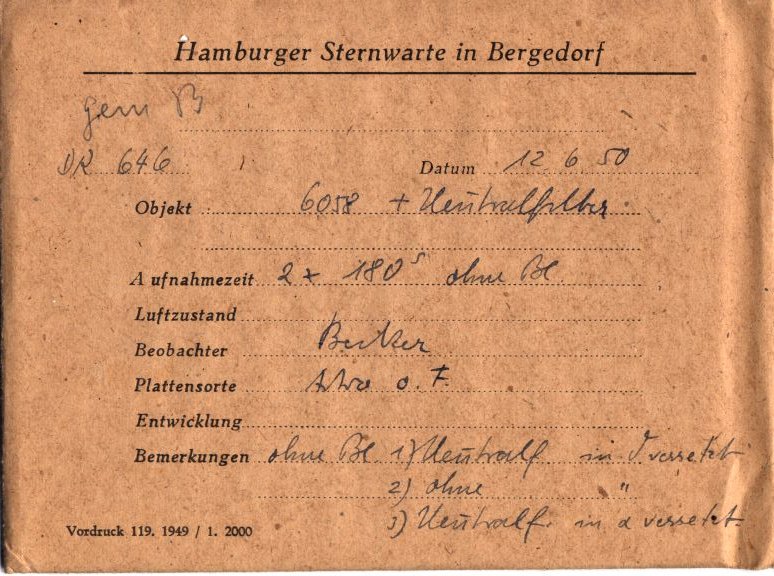 Hamburger Sternwarte in Bergedorf
gem B
DR 646
Datum 12 6 50
Objekt 6058 + Neutralfilter
Aufnahmezeit 2 × 180ˢ ohne Bl.
Luftzustand
Beobachter Becker
Plattensorte Astro o. F.
Entwicklung
Bemerkungen ohne Bl 1) Neutralf in δ versetzt
2) ohne "
3) Neutralf. in α versetzt
Vordruck 119. 1949 / 1. 2000